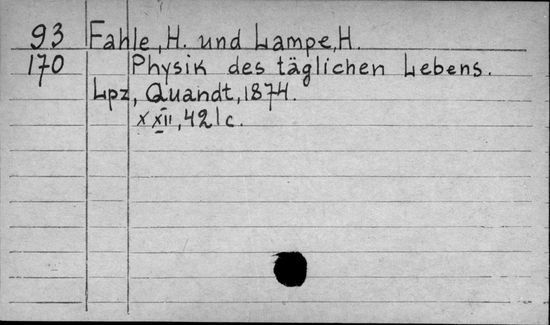 93 Fahle, H. und Lampe, H.
170 Physik des täglichen Lebens.
Lpz, Quandt, 1874.
XXII, 421 c.